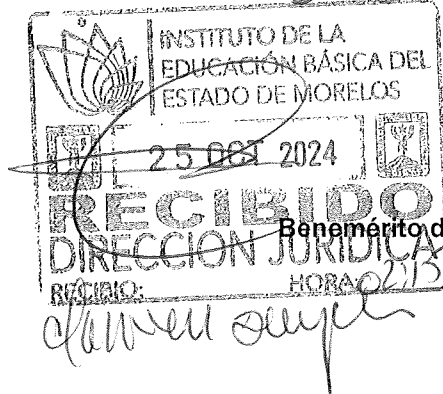 INSTITUTO DE LA
EDUCACIÓN BÁSICA DEL
ESTADO DE MORELOS
25 OCT 2024
RECIBIDO
Benemérito d
DIRECCION JURIDICA
RECIBIO: HORA 02:15